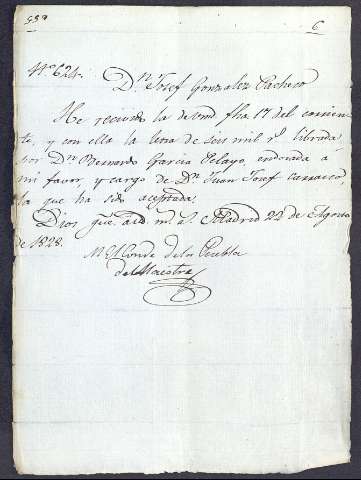 6
Nº 624.
Dn. Josef Gonzalez Pacheco
He recivido la de vmd fha 17 del corrien-
te, y con ella la letra de seis mil rs. librada
por Dn. Bernardo Garcia Pelayo, endosada á
mi favor, y cargo de Dn. Juan Josef Carrasco,
la que ha sido aceptada.
Dios gue. á vd. ms. as. Madrid 22 de Agosto
de 1828.
El Conde de la Puebla
del Maestre